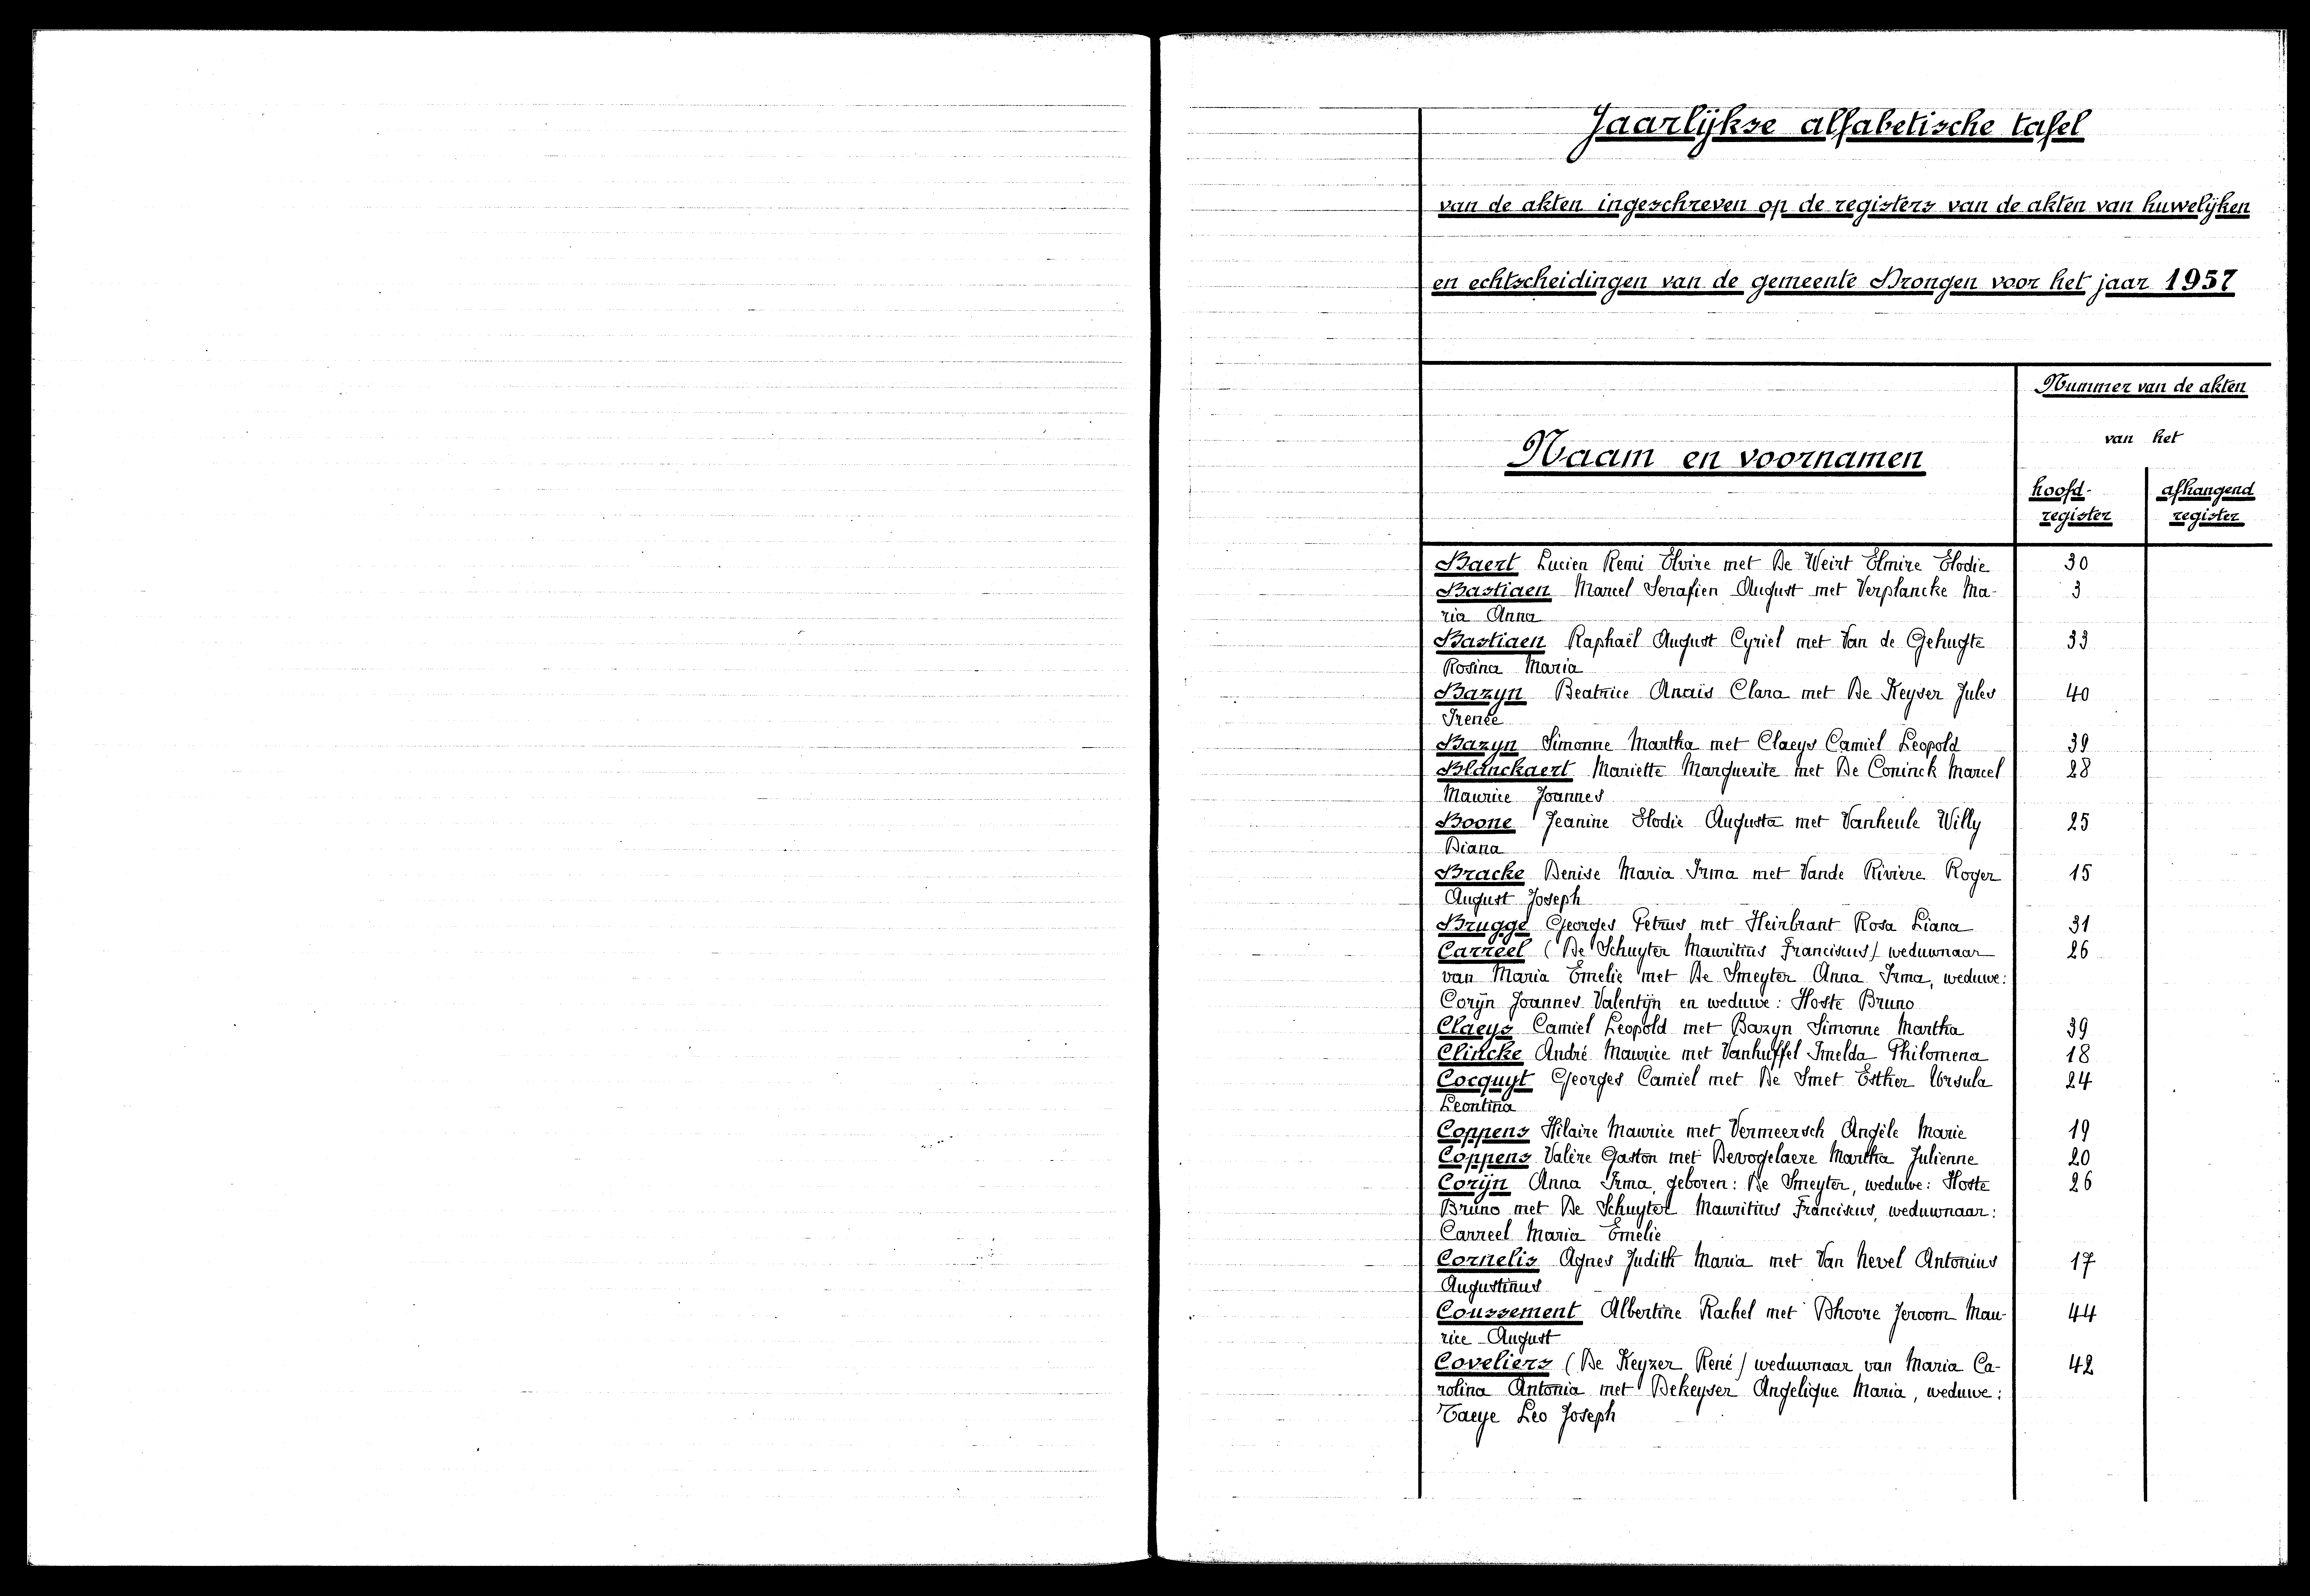 Jaarlijkse alfabetische tafel
van de akten ingeschreven op de registers van de akten van huwelijken
en echtscheidingen van de gemeente Drongen voor het jaar 1957
Nummer van de akten
van het
Naam en voornamen
hoofd- afhangend
register register
Baert Lucien Remi Elvire met De Weirt Elmire Elodie 30
Bastiaen Marcel Serafien August met Verplancke Ma- 3
ria Anna
Bastiaen Raphaël August Cyriel met Van de Gehugte 33
Rosina Maria
Bazyn Beatrice Anaïs Clara met De Keyser Jules 40
Irenée
Bazyn Simonne Martha met Claeys Camiel Leopold 39
Blanckaert Mariette Marguerite met De Coninck Marcel 28
Maurice Joannes
Boone Jeanine Elodie Augusta met Vanheule Willy 25
Diana
Bracke Denise Maria Irma met Vande Riviere Roger 15
August Joseph
Brugge Georges Petrus met Heirbrant Rosa Liana 31
Carreel (De Schuyter Mauritius Franciscus) weduwnaar 26
van Maria Emelie met De Smeyter Anna Irma, weduwe:
Corijn Joannes Valentijn en weduwe: Hoste Bruno
Claeys Camiel Leopold met Bazyn Simonne Martha 39
Clincke André Maurice met Vanhuffel Imelda Philomena 18
Cocquyt Georges Camiel met De Smet Esther Ursula 24
Leontina
Coppens Hilaire Maurice met Vermeersch Angèle Marie 19
Coppens Valère Gaston met Devogelaere Martha Julienne 20
Corijn Anna Irma, geboren: De Smeyter, weduwe: Hoste 26
Bruno met De Schuyter Mauritius Franciscus, weduwnaar:
Carreel Maria Emelie
Cornelis Agnes Judith Maria met Van Nevel Antonius 17
Augustinus
Coussement Albertine Rachel met Dhoore Jeroom Mau- 44
rice August
Coveliers (De Keyzer René) weduwnaar van Maria Ca- 42
rolina Antonia met Dekeyser Angelique Maria, weduwe:
Taeye Leo Joseph